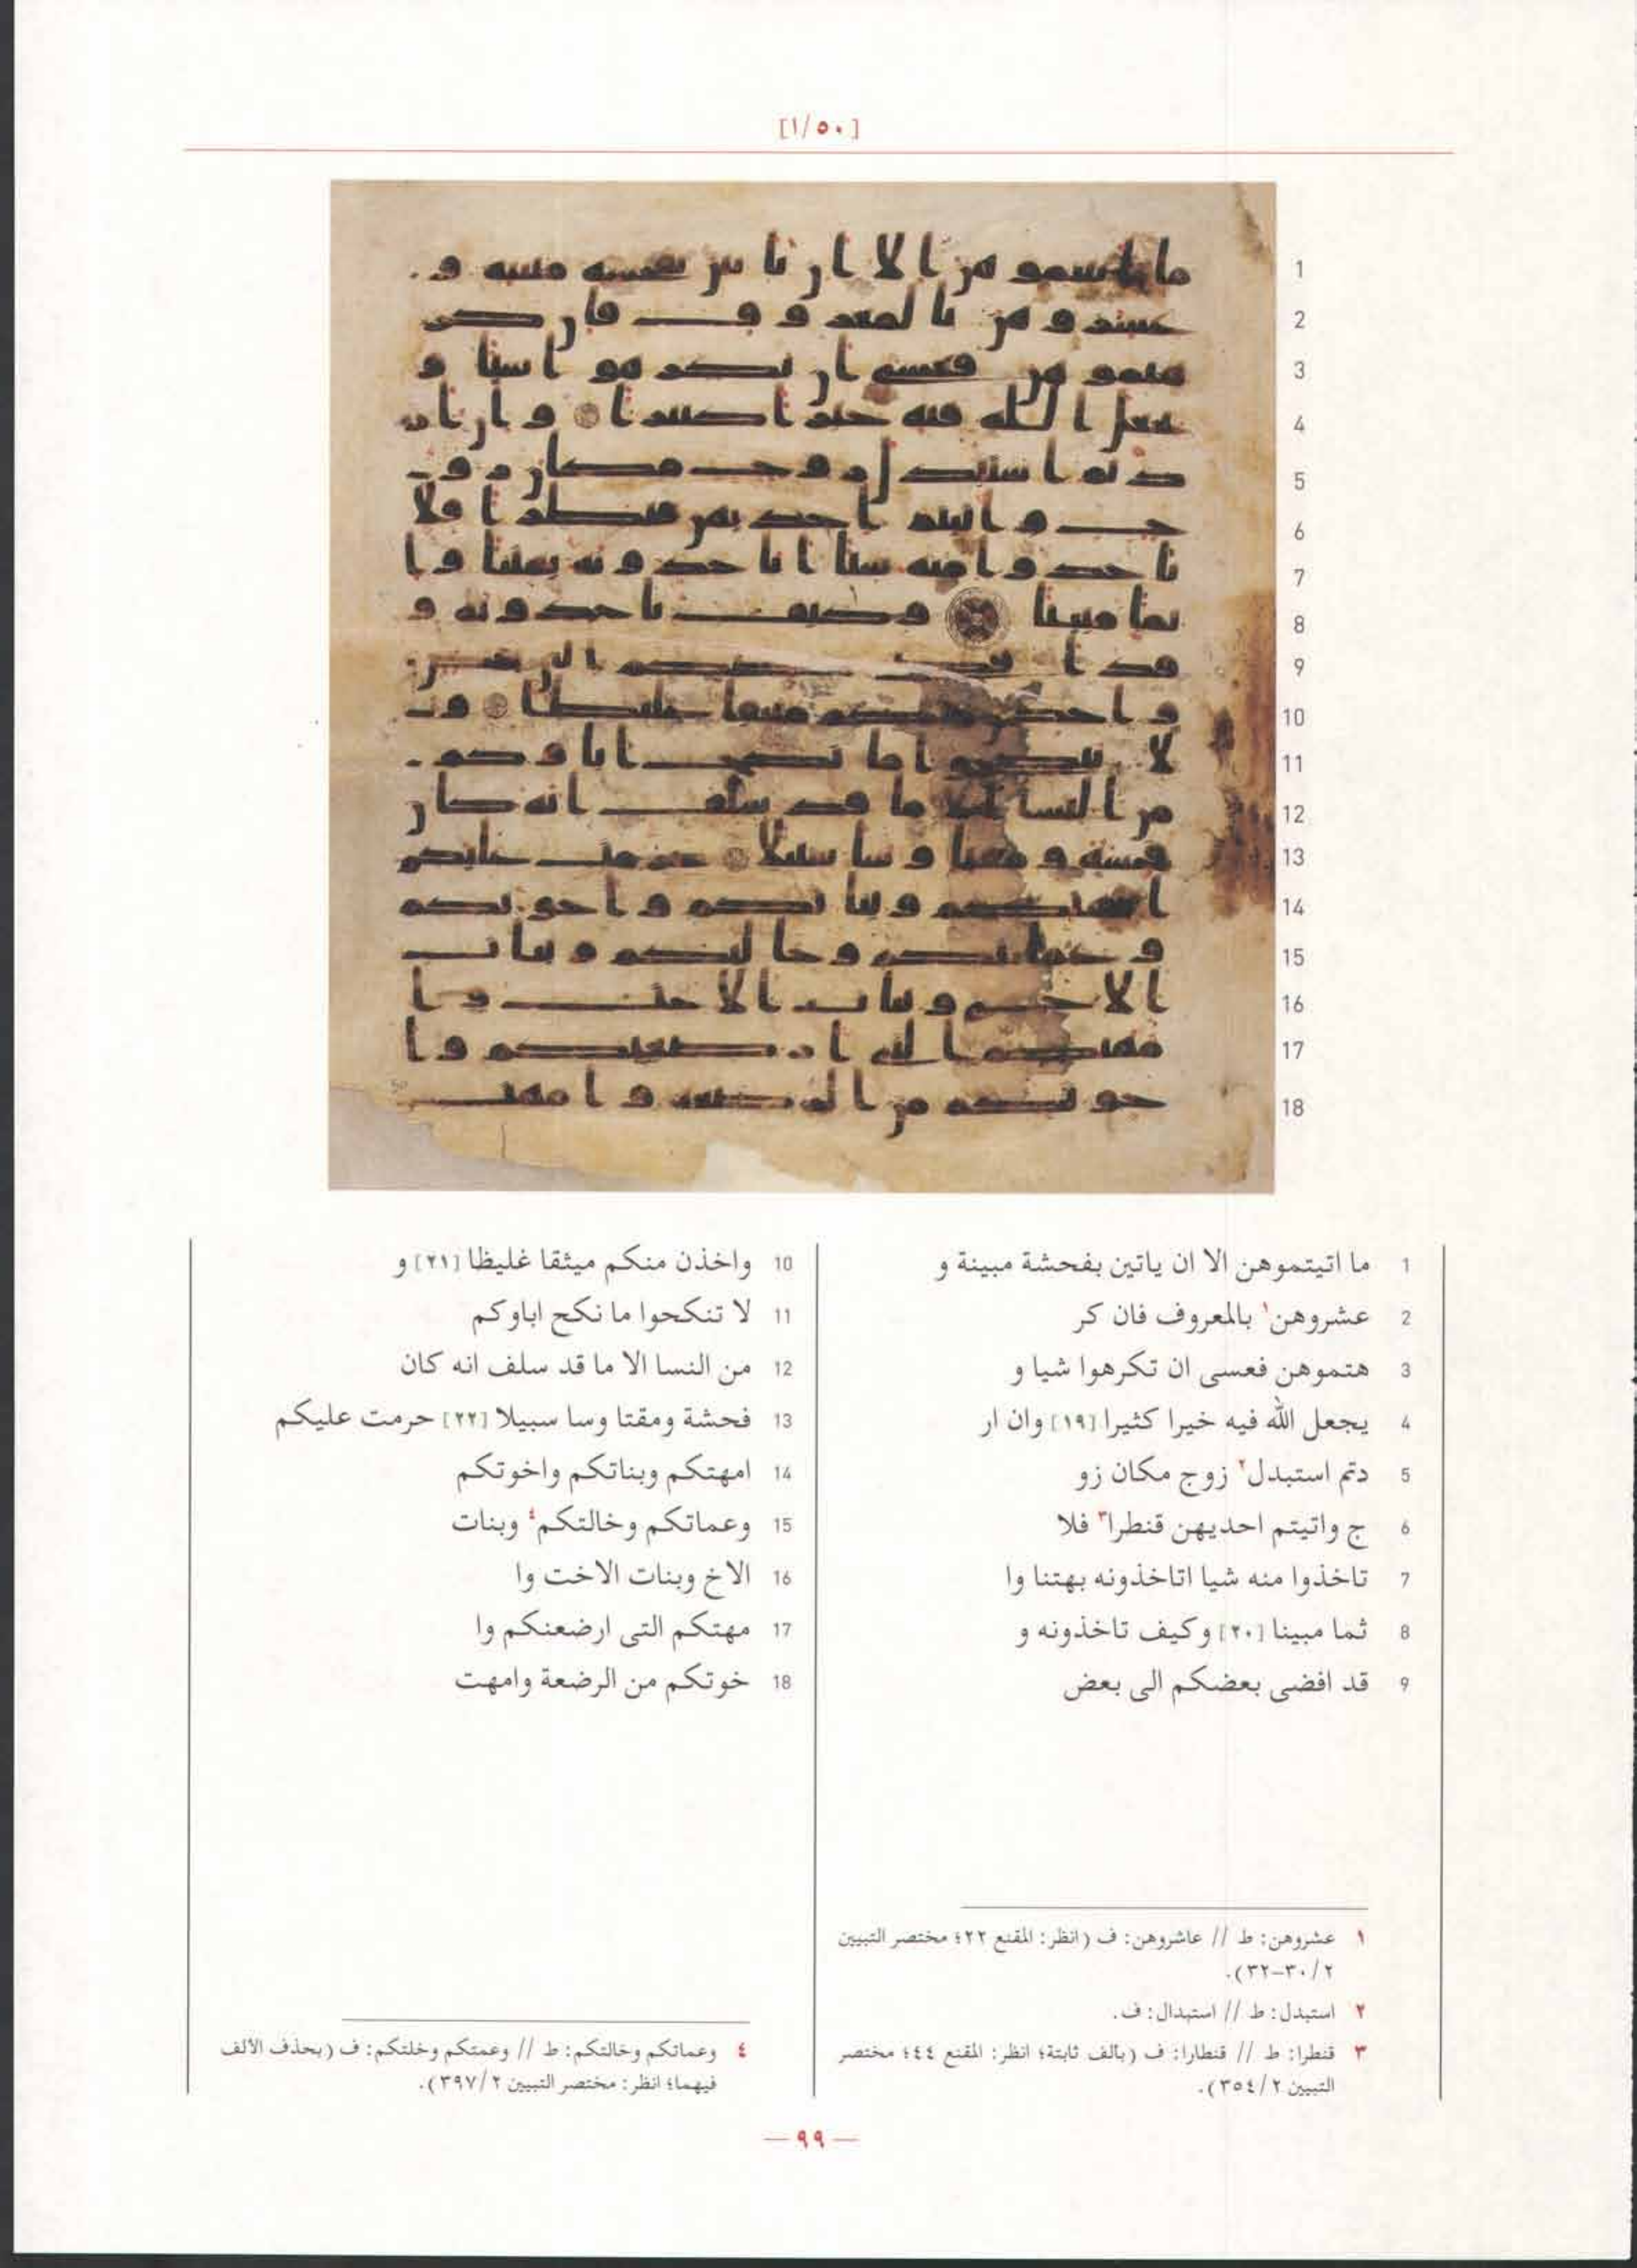 [١/٥٠]
1 ما اتيتموهن الا ان ياتين بفحشة مبينة و
2 عشروهن١ بالمعروف فان كر
3 هتموهن فعسى ان تكرهوا شيا و
4 يجعل الله فيه خيرا كثيرا [١٩] وان ار
5 دتم استبدل٢ زوج مكان زو
6 ج واتيتم احديهن قنطرا٣ فلا
7 تاخذوا منه شيا اتاخذونه بهتنا وا
8 ثما مبينا [٢٠] وكيف تاخذونه و
9 قد افضى بعضكم الى بعض
10 واخذن منكم ميثقا غليظا [٢١] و
11 لا تنكحوا ما نكح اباوكم
12 من النسا الا ما قد سلف انه كان
13 فحشة ومقتا وسا سبيلا [٢٢] حرمت عليكم
14 امهتكم وبناتكم واخوتكم
15 وعماتكم وخالتكم٤ وبنات
16 الاخ وبنات الاخت وا
17 مهتكم التى ارضعنكم وا
18 خوتكم من الرضعة وامهت
١ عشروهن: ط // عاشروهن: ف (انظر: المقنع ٢٢؛ مختصر التبيين
٢/ ٣٠-٣٢).
٢ استبدل: ط // استبدال: ف.
٣ قنطرا: ط // قنطارا: ف (بالف ثابتة؛ انظر: المقنع ٤٤؛ مختصر
التبيين ٢/ ٣٥٤).
٤ وعماتكم وخالتكم: ط // وعمتكم وخلتكم: ف (بحذف الألف
فيهما؛ انظر: مختصر التبيين ٢/ ٣٩٧).
— ٩٩ —